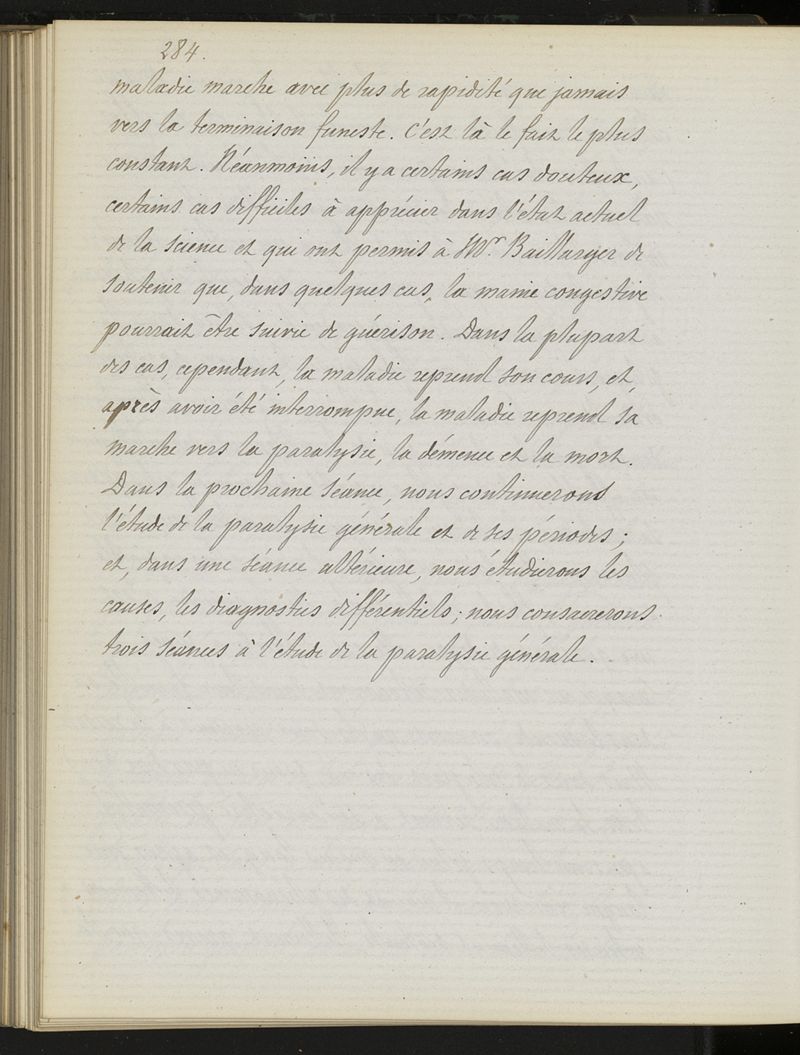 284.
maladie marche avec plus de rapidité que jamais
vers la terminaison funeste. C'est là le fait le plus
constant. Néanmoins, il y a certains cas douteux,
certains cas difficiles à apprécier dans l'état actuel
de la science et qui ont permis à Mr. Baillarger de
soutenir que, dans quelques cas, la manie congestive
pourrait être suivie de guérison. Dans la plupart
des cas, cependant, la maladie reprend son cours, et,
après avoir été interrompue, la maladie reprend sa
marche vers la paralysie, la démence et la mort.
Dans la prochaine séance, nous continuerons
l'étude de la paralysie générale et de ses périodes ;
et, dans une séance ultérieure, nous étudierons les
causes, les diagnostics différentiels ; nous consacrerons
trois séances à l'étude de la paralysie générale.